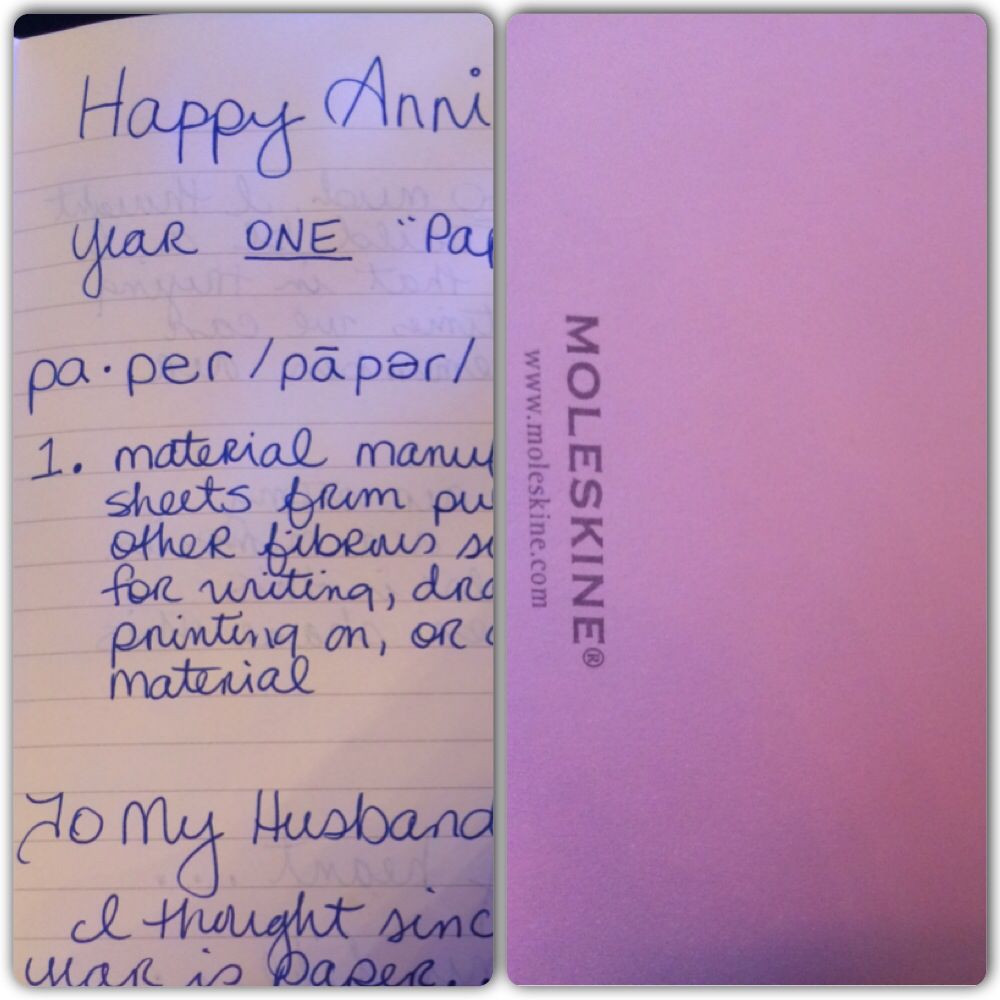 Happy Anni
year ONE "Pap
pa·per/pāpər/
1. material manu
sheets from pu
other fibrous s
for writing, dra
printing on, or
material
To My Husband
I thought sinc
year is paper.
MOLESKINE®
www.moleskine.com